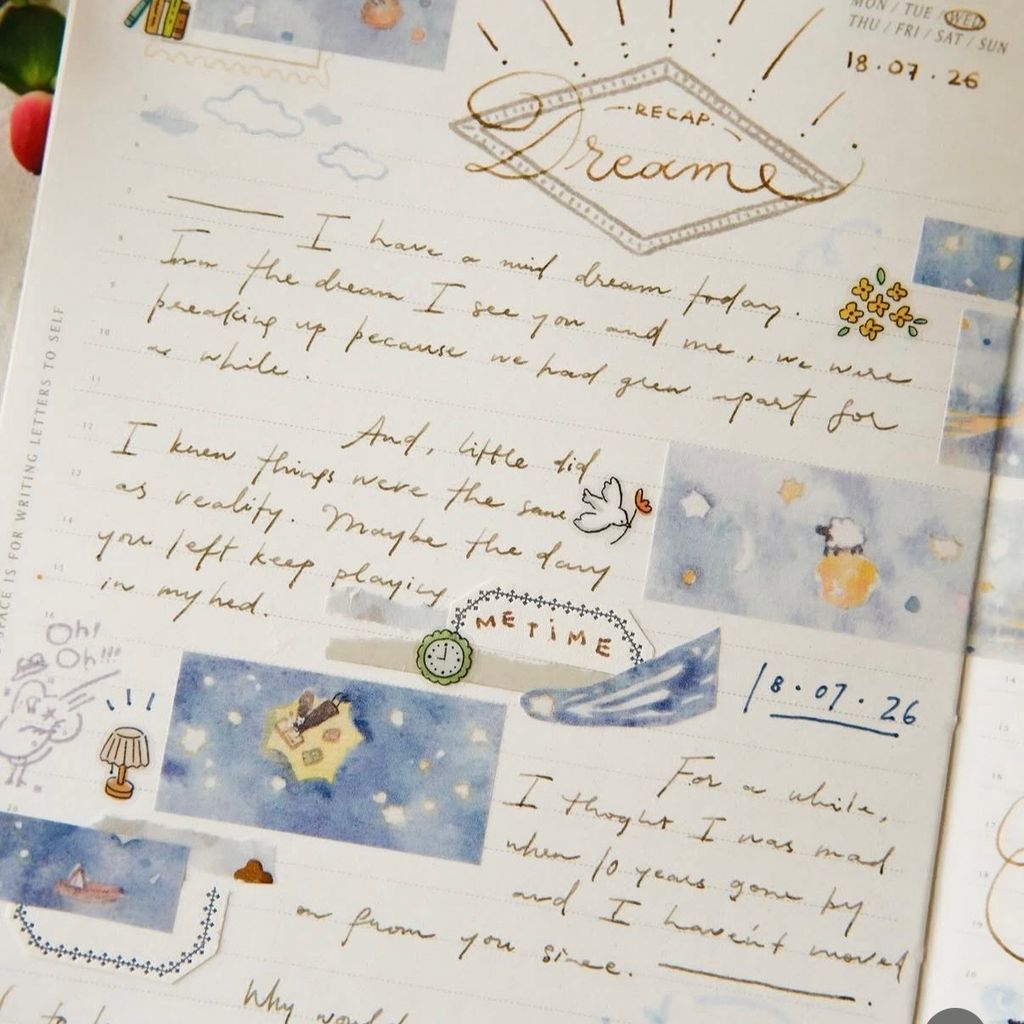 MON / TUE / WED
THU / FRI / SAT / SUN
18.07.26
RECAP.
Dreame
I have a mid dream today.
From the dream I see you and me, we were
breaking up because we had grew apart for
a while.
And, little did
I knew things were the same
as reality. Maybe the day
you left keep playing
in my hed.
SPACE IS FOR WRITING LETTERS TO SELF
ME TiME
Oh!
Oh!!!
18.07.26
For a while,
I thoght I was mad
when 10 years gone by
and I haven't moved
on from you since.
Why would